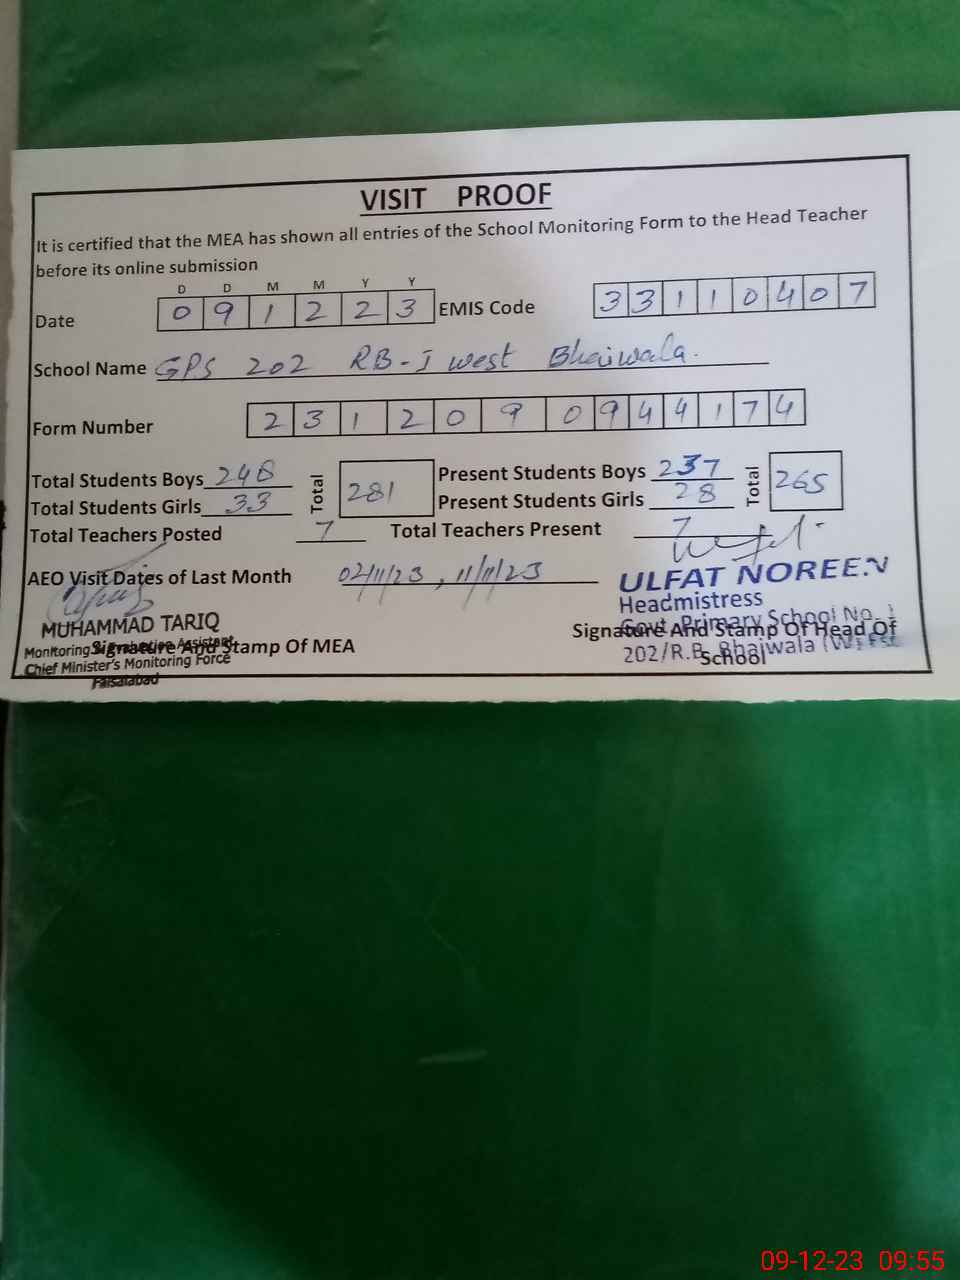 VISIT PROOF
It is certified that the MEA has shown all entries of the School Monitoring Form to the Head Teacher
before its online submission
D D M M Y Y
Date 0 9 1 2 2 3 EMIS Code 3 3 1 1 0 4 0 7
School Name GPS 202 RB-I west Bhaiwala.
Form Number 2 3 1 2 0 9 0 9 4 4 1 7 4
Total Students Boys 248 Total 281 Present Students Boys 237 Total 265
Total Students Girls 33 Present Students Girls 28
Total Teachers Posted 7 Total Teachers Present 7
AEO Visit Dates of Last Month 02/11/23, 11/11/23
ULFAT NOREEN
Headmistress
Govt. Primary School No. 1
202/R.B. Bhaiwala
Signature And Stamp Of Head Of
School
MUHAMMAD TARIQ
Monitoring & Evaluation Assistant
Chief Minister's Monitoring Force
Faisalabad
Signature And Stamp Of MEA
09-12-23 09:55